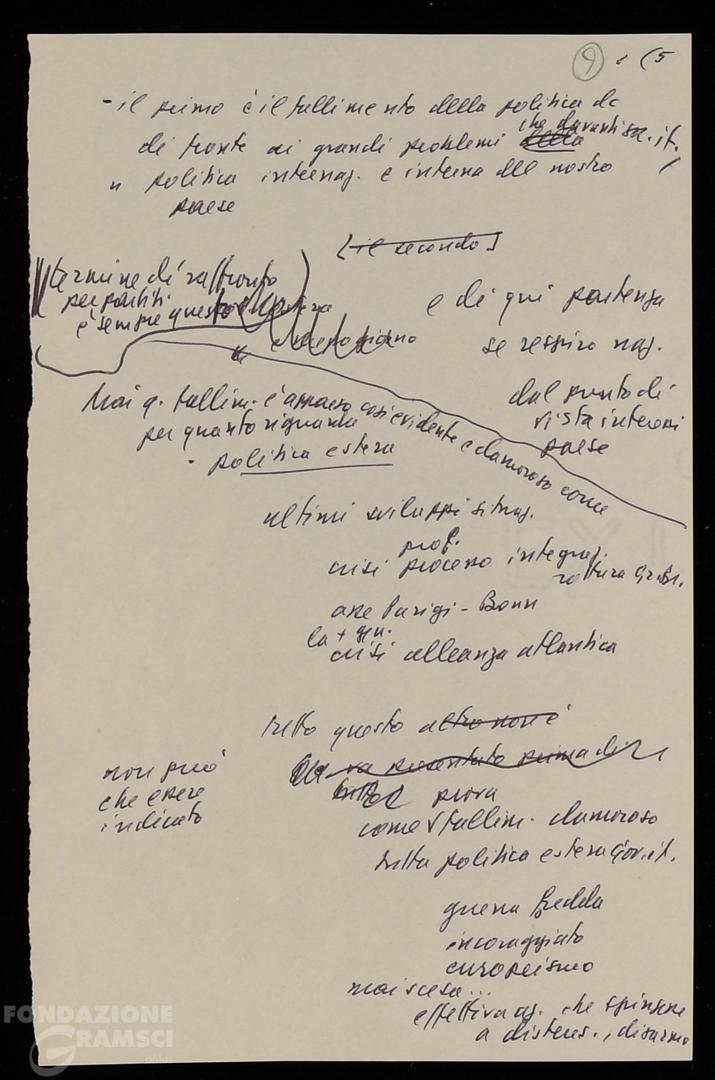 9 (5
- il primo è il fallimento della politica dc
di fronte ai grandi problemi ~~della~~ che davanti
politica internaz. e interna del nostro
paese
[~~il secondo~~]
termine di raffronto
per partiti
è sempre questo
e di qui partenza
se respiro naz.
dal punto di
vista interessi
paese
Mai q. fallim. è apparso così evidente e clamoroso come
per quanto riguarda
- politica estera
ultimi sviluppi situaz.
prof.
crisi processo integraz.
rottura
asse Parigi - Bonn
la + gen.
crisi alleanza atlantica
tutto questo ~~altro non è~~
~~va presentato prima di~~
non può
che essere
indicato
prova
come fallim. clamoroso
tutta politica estera gov. it.
guerra fredda
incoraggiato
europeismo
mai scesa...
effettiva az. che spingesse
a distens., disarmo
FONDAZIONE
GRAMSCI